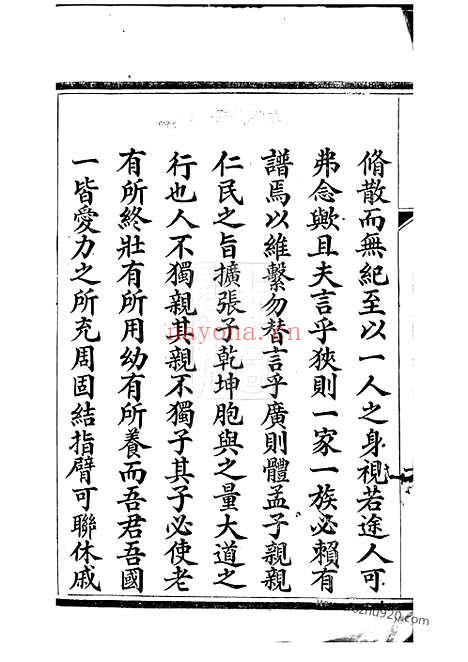 脩散而無紀至以一人之身視若途人可
弗念歟且夫言乎狹則一家一族必賴有
譜焉以維繫勿替言乎廣則體孟子親親
仁民之旨擴張子乾坤胞與之量大道之
行也人不獨親其親不獨子其子必使老
有所終壯有所用幼有所養而吾君吾國
一皆愛力之所充周固結指臂可聯休戚
nayona.cn